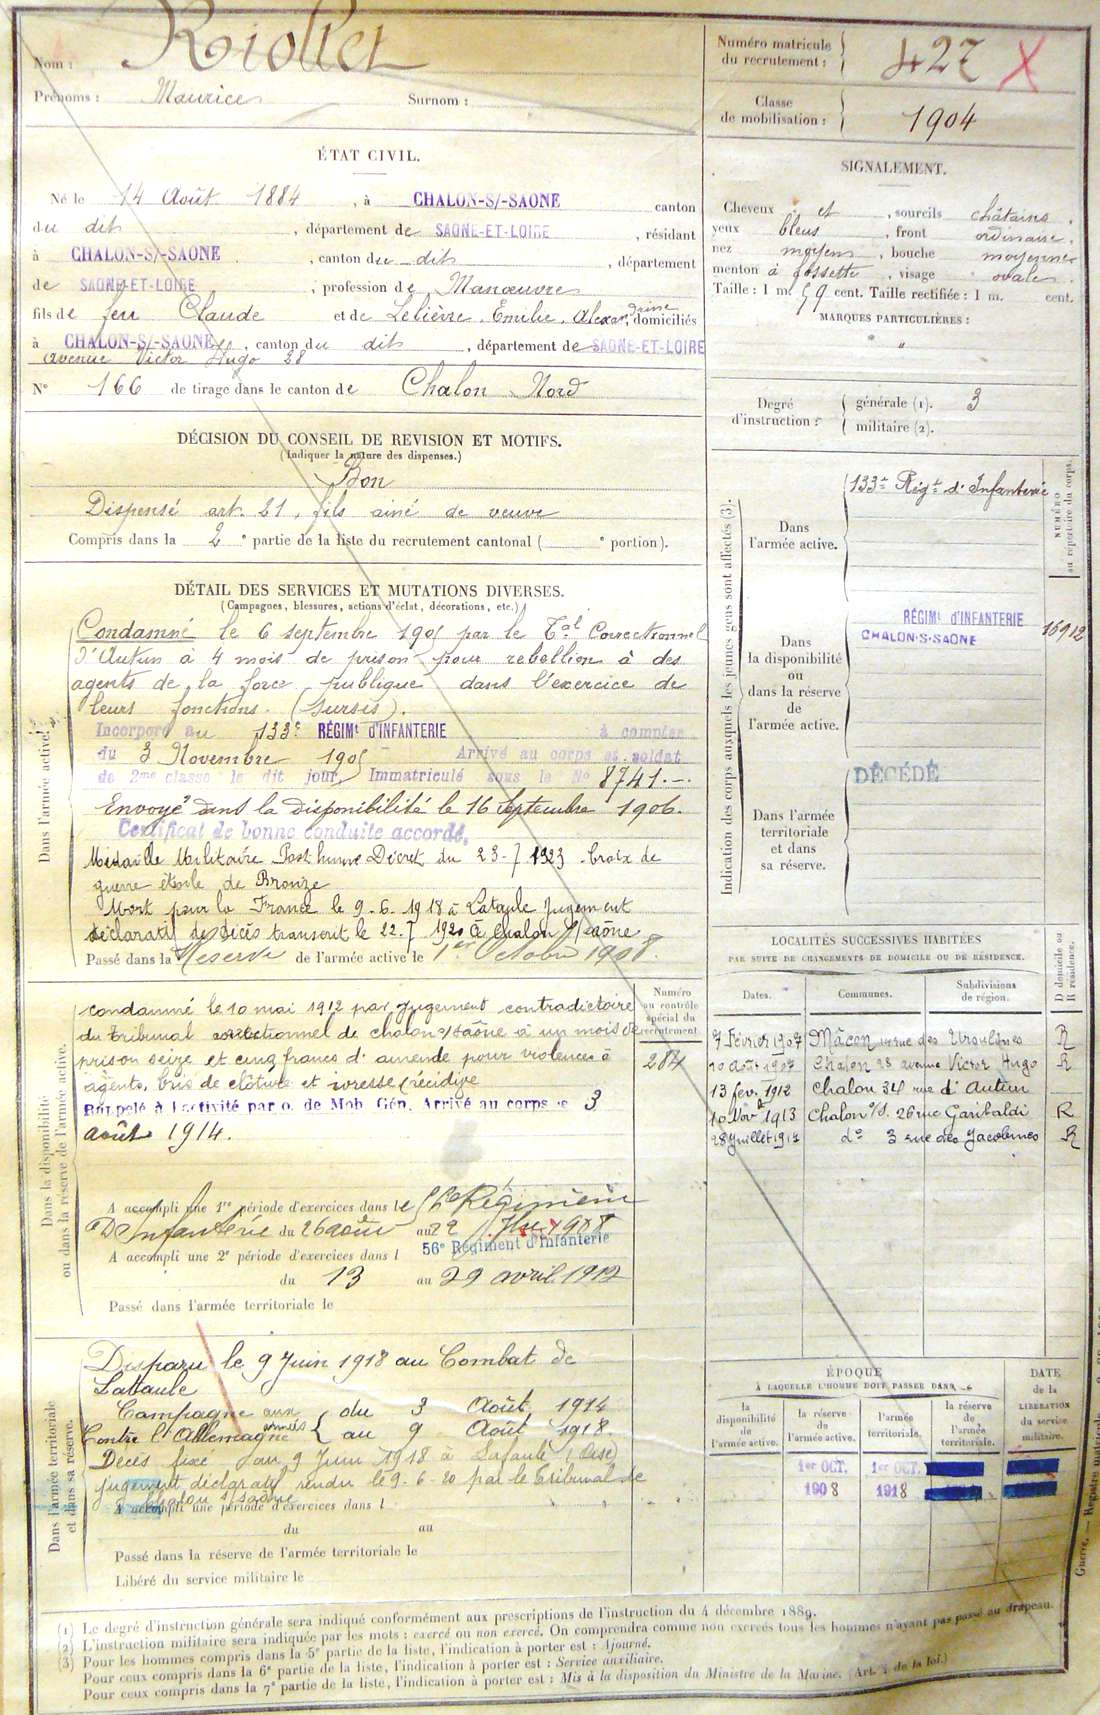 Nom : Riollet
Prénoms : Maurice Surnom :
Numéro matricule du recrutement : 427 X
Classe de mobilisation : 1904
ÉTAT CIVIL.
Né le 14 Août 1884, à CHALON-S/-SAONE canton
du dit, département de SAONE-ET-LOIRE, résidant
à CHALON-S/-SAONE, canton du dit, département
de SAONE-ET-LOIRE, profession de Manœuvre
fils de feu Claude et de Lelièvre, Emilie, Alexandrine, domiciliés
à CHALON-S/-SAONE, canton du dit, département de SAONE-ET-LOIRE
avenue Victor Hugo 28
N° 166 de tirage dans le canton de Chalon Nord
SIGNALEMENT.
Cheveux et, sourcils châtains.
yeux bleus, front ordinaire.
nez moyen, bouche moyenne
menton à fossette, visage ovale
Taille : 1 m. 59 cent. Taille rectifiée : 1 m. cent.
MARQUES PARTICULIÈRES :
"
Degré d'instruction : générale (1). 3
militaire (2).
DÉCISION DU CONSEIL DE REVISION ET MOTIFS.
(Indiquer la nature des dispenses.)
Bon
Dispensé art. 21, fils aîné de veuve
Compris dans la 2e partie de la liste du recrutement cantonal ( e portion).
DÉTAIL DES SERVICES ET MUTATIONS DIVERSES.
(Campagnes, blessures, actions d'éclat, décorations, etc.)
Dans l'armée active.
Condamné le 6 septembre 1905 par le Tal Correctionnel
d'Autun à 4 mois de prison pour rebellion à des
agents de la force publique dans l'exercice de
leurs fonctions. (Sursis).
Incorporé au 133e RÉGIMt D'INFANTERIE à compter
du 3 Novembre 1905 Arrivé au corps et soldat
de 2me classe le dit jour, Immatriculé sous le No 8741.-.
Envoyé dans la disponibilité le 16 Septembre 1906.
Certificat de bonne conduite accordé.
Médaille Militaire Posthume Décret du 23-7 1923 Croix de
guerre étoile de Bronze
Mort pour la France le 9.6.1918 à Lataule Jugement
déclaratif de décès transcrit le 22.7 1920 à Chalon s/saône
Passé dans la Réserve de l'armée active le 1er Octobre 1908.
Indication des corps auxquels les jeunes gens sont affectés (3).
NUMÉRO au répertoire du corps.
Dans l'armée active.
133e Régt d'Infanterie
Dans la disponibilité ou dans la réserve de l'armée active.
RÉGIMt D'INFANTERIE
CHALON-S-SAONE
16912
Dans l'armée territoriale et dans sa réserve.
DÉCÉDÉ
Dans la disponibilité ou dans la réserve de l'armée active.
Numéro au contrôle spécial du recrutement
284
condamné le 10 mai 1912 par jugement contradictoire
du tribunal correctionnel de chalon s/saône à un mois de
prison seize et cinq francs d'amende pour violences à
agents, bris de clôture et ivresse (récidive
Rappelé à l'activité par o. de Mob. Gén. Arrivé au corps le 3
août 1914.
A accompli une 1re période d'exercices dans le Régiment
D'Infanterie du 26 août au 22 7bre 1908
A accompli une 2e période d'exercices dans l 56e Régiment d'Infanterie
du 13 au 29 avril 1912
Passé dans l'armée territoriale le
LOCALITÉS SUCCESSIVES HABITÉES
PAR SUITE DE CHANGEMENTS DE DOMICILE OU DE RÉSIDENCE.
Dates. Communes. Subdivisions de région. D domicile ou R résidence.
7 Février 1907 Mâcon, rue des Ursulines R
10 août 1907 Chalon 28 avenue Victor Hugo R
13 fév. 1912 Chalon 34 rue d'Autun
10 Novbre 1913 Chalon s/s. 26 rue Garibaldi R
28 Juillet 1914 do 3 rue des Jacobines R
Dans l'armée territoriale et dans sa réserve.
Disparu le 9 Juin 1918 au Combat de
Lataule
Campagne aux armées du 3 Août 1914
Contre l'Allemagne au 9 Août 1918.
Décès fixé au 9 Juin 1918 à Lataule (Oise)
jugement déclaratif rendu le 9-6-20 par le tribunal de
Chalon s/saône
A accompli une période d'exercices dans l
du au
Passé dans la réserve de l'armée territoriale le
Libéré du service militaire le
ÉPOQUE
À LAQUELLE L'HOMME DOIT PASSER DANS
la disponibilité de l'armée active.
la réserve de l'armée active.
l'armée territoriale.
la réserve de l'armée territoriale.
DATE de la LIBÉRATION du service militaire.
1er OCT. 1er OCT.
1908 1918
(1) Le degré d'instruction générale sera indiqué conformément aux prescriptions de l'instruction du 4 décembre 1889.
(2) L'instruction militaire sera indiquée par les mots : exercé ou non exercé. On comprendra comme non exercés tous les hommes n'ayant pas passé au drapeau.
(3) Pour les hommes compris dans la 5e partie de la liste, l'indication à porter est : Ajourné.
Pour ceux compris dans la 6e partie de la liste, l'indication à porter est : Service auxiliaire.
Pour ceux compris dans la 7e partie de la liste, l'indication à porter est : Mis à la disposition du Ministre de la Marine. (Art. 4 de la loi.)
Guerre. — Registre matricule